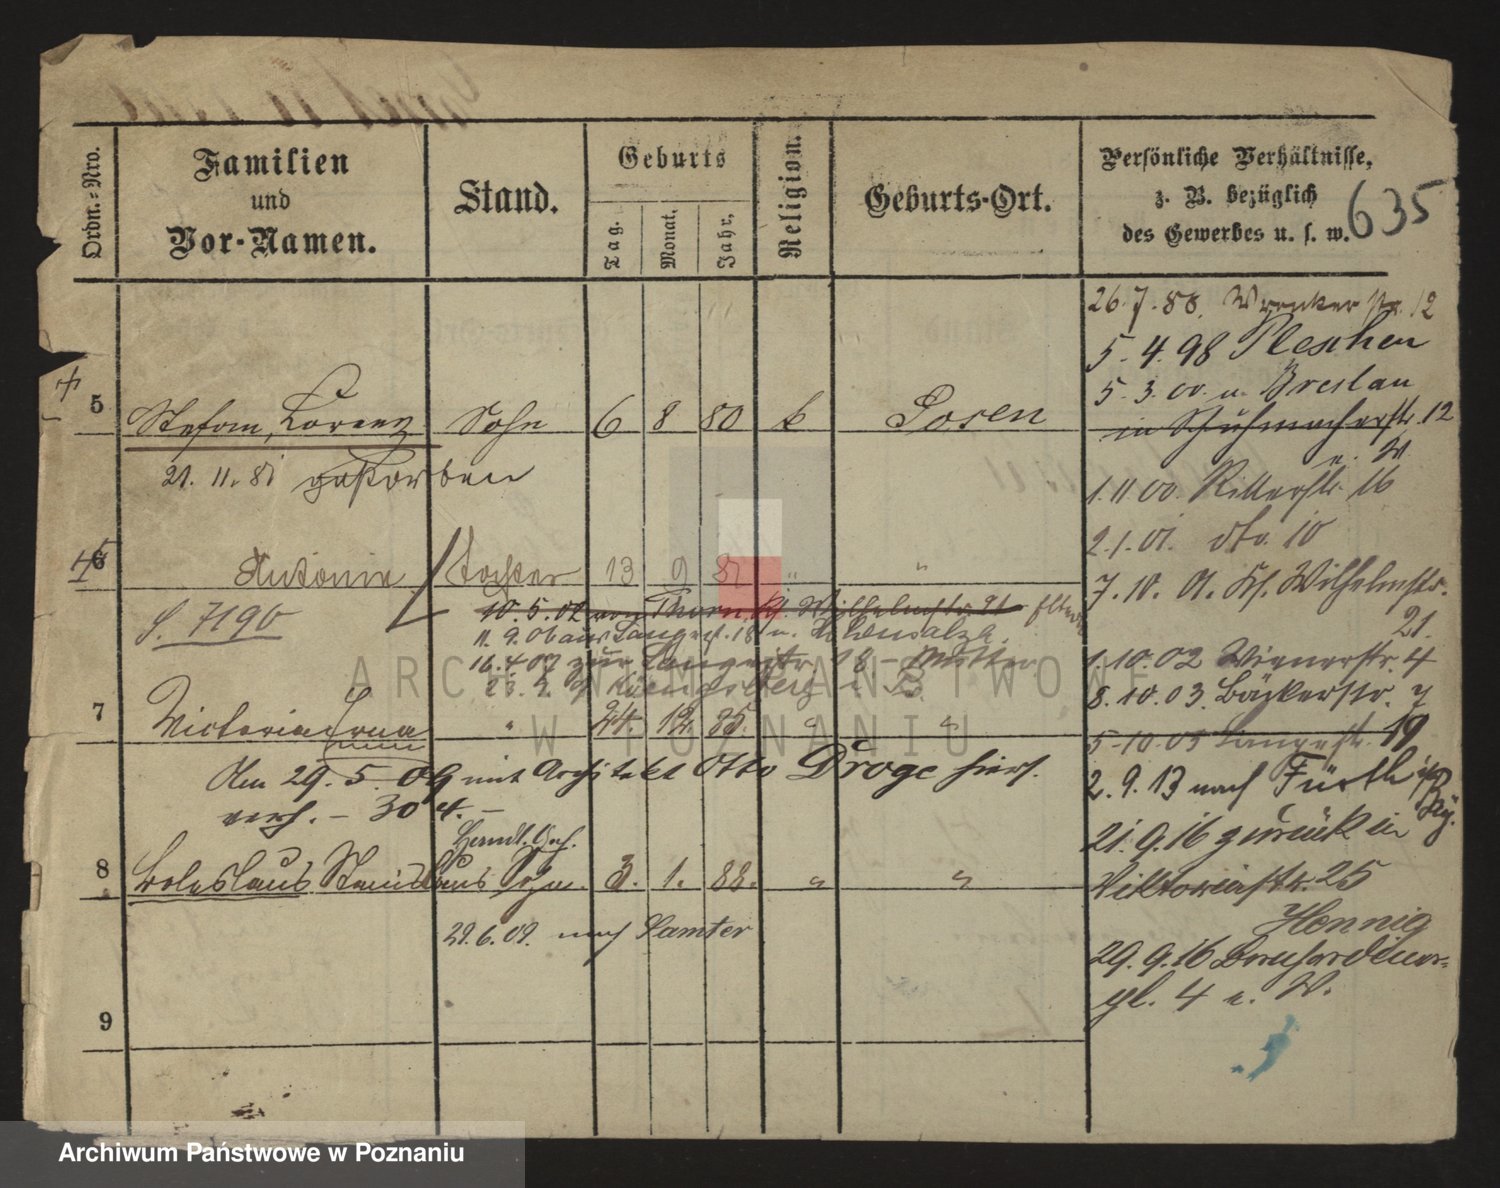 Ordn.-Nro.
Familien
und
Vor-Namen.
Stand.
Geburts
Tag.
Monat.
Jahr.
Religion.
Geburts-Ort.
Persönliche Verhältnisse,
z. B. bezüglich
des Gewerbes u. s. w.
635
26.7.88. Wronker str. 12
5.4.98 Pleschen
5.3.00. u. Breslau
in Schuhmacherstr. 12
u. W
1.11.00. Ritterstr. 16
2.1.01. dto. 10
7.10.01. Kl. Wilhelmstr.
21.
1.10.02 Wienerstr. 4
8.10.03. Bäckerstr. 7
5-10.05 Langestr. 19
2.9.13 nach Fürth i/
Bay.
21.9.16 zurück in
Viktoriastr. 25
Hennig
29.9.16 Bernhardiner-
pl. 4 u. W.
5 Stefan, Lorenz Sohn 6 8 80 k Posen
21.11.81 gestorben
6 Antonie Tochter 13 9 81 " "
S. 7190
10.5.02 von Thorn Kl. Wilhelmstr. 21 Eltern
11.9.06 aus Langestr. 18 n. Hohensalza
16.4.07 zur Langestr. 18 – Mutter
Königsberg
7 Victoria Erna " 24. 12. 85. " "
Am 29.5.09 mit Architekt Otto Droge hiers.
verh. – 304. –
Handl. Geh.
8 Boleslaus Stanislaus Sohn. 3. 1. 88. " "
29.6.09. nach Samter
9
ARCHIWUM PAŃSTWOWE
W POZNANIU
Archiwum Państwowe w Poznaniu